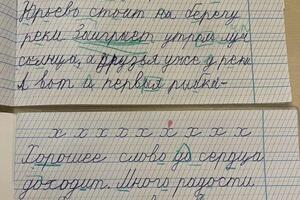 Юрьево стоит на берегу
реки Заиграет утром луч
солнца, а друзья уже у реки
А вот и первая рыбка-
х х х х х х х х х
Хорошее слово до сердца
доходит. Много радости